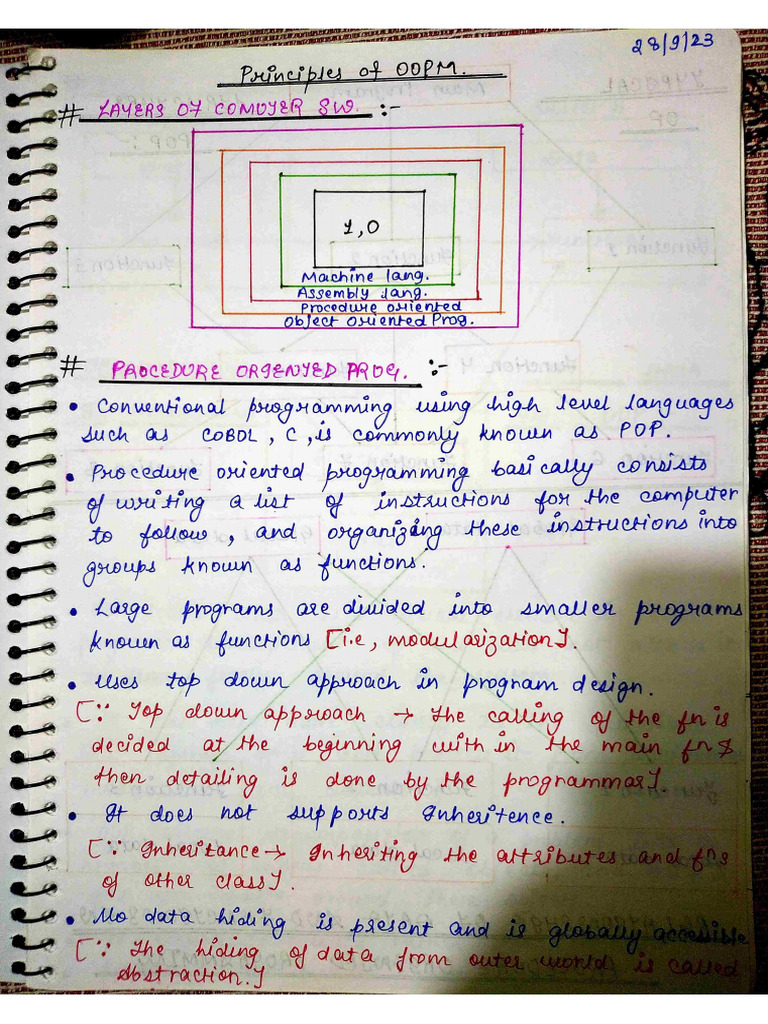 28/9/23
Principles of OOPM.
# LAYERS OF COMUTER SW. :-
1,0
Machine lang.
Assembly lang.
Procedure oriented
Object Oriented Prog.
# PROCEDURE ORIENTED PROG. :-
• Conventional programming using high level languages
such as COBOL, C, is commonly known as POP.
• Procedure oriented programming basically consists
of writing a list of instructions for the computer
to follow, and organizing these instructions into
groups known as functions.
• Large programs are divided into smaller programs
known as functions [i.e, modularization].
• Uses top down approach in program design.
[∵ Top down approach → The calling of the fn is
decided at the beginning with in the main fn &
then detailing is done by the programmar]
• It does not supports Inheritence.
[∵ Inheritance → Inheriting the attributes and fns
of other class].
• No data hiding is present and is globally accessible
[∵ The hiding of data from outer world is called
Abstraction.]